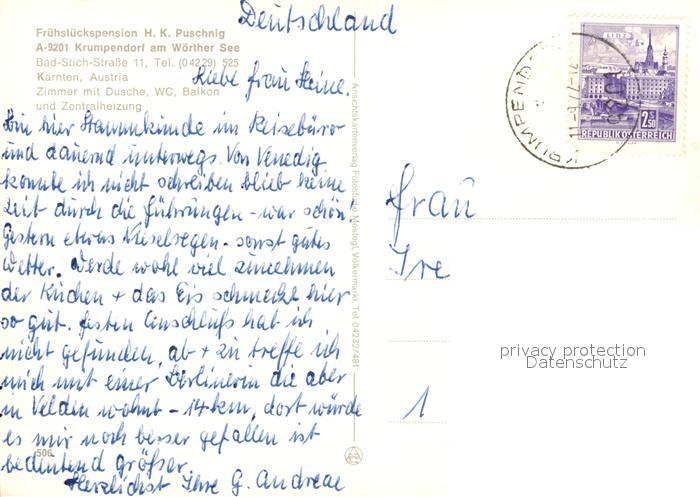 Deutschland
Frühstückspension H. K. Puschnig
A-9201 Krumpendorf am Wörther See
Bad-Stich-Straße 11, Tel. (04229) 525
Kärnten, Austria
Zimmer mit Dusche, WC, Balkon
und Zentralheizung
Liebe Frau Heine.
Bin hier Stammkunde im Reisebüro
und dauernd unterwegs. Von Venedig
konnte ich nicht schreiben blieb keine
Zeit durch die Führungen - war schön
Gestern etwas Nieselregen - sonst gutes
Wetter. Werde wohl viel zunehmen
der Kuchen + das Eis schmeckt hier
so gut. festen Anschluß hat ich
nicht gefunden, ab + zu treffe ich
mich mit einer Berlinerin die aber
in Velden wohnt - 14 km, dort würde
es mir noch besser gefallen ist
bedeutend größer.
Herzlichst Ihre G. Andreae
506
Ansichtskartenverlag Fotostudio Völkermarkt, Tel. 04232/481
LINZ
2.50
REPUBLIK ÖSTERREICH
KRUMPEND
Frau
Ire
1
privacy protection
Datenschutz